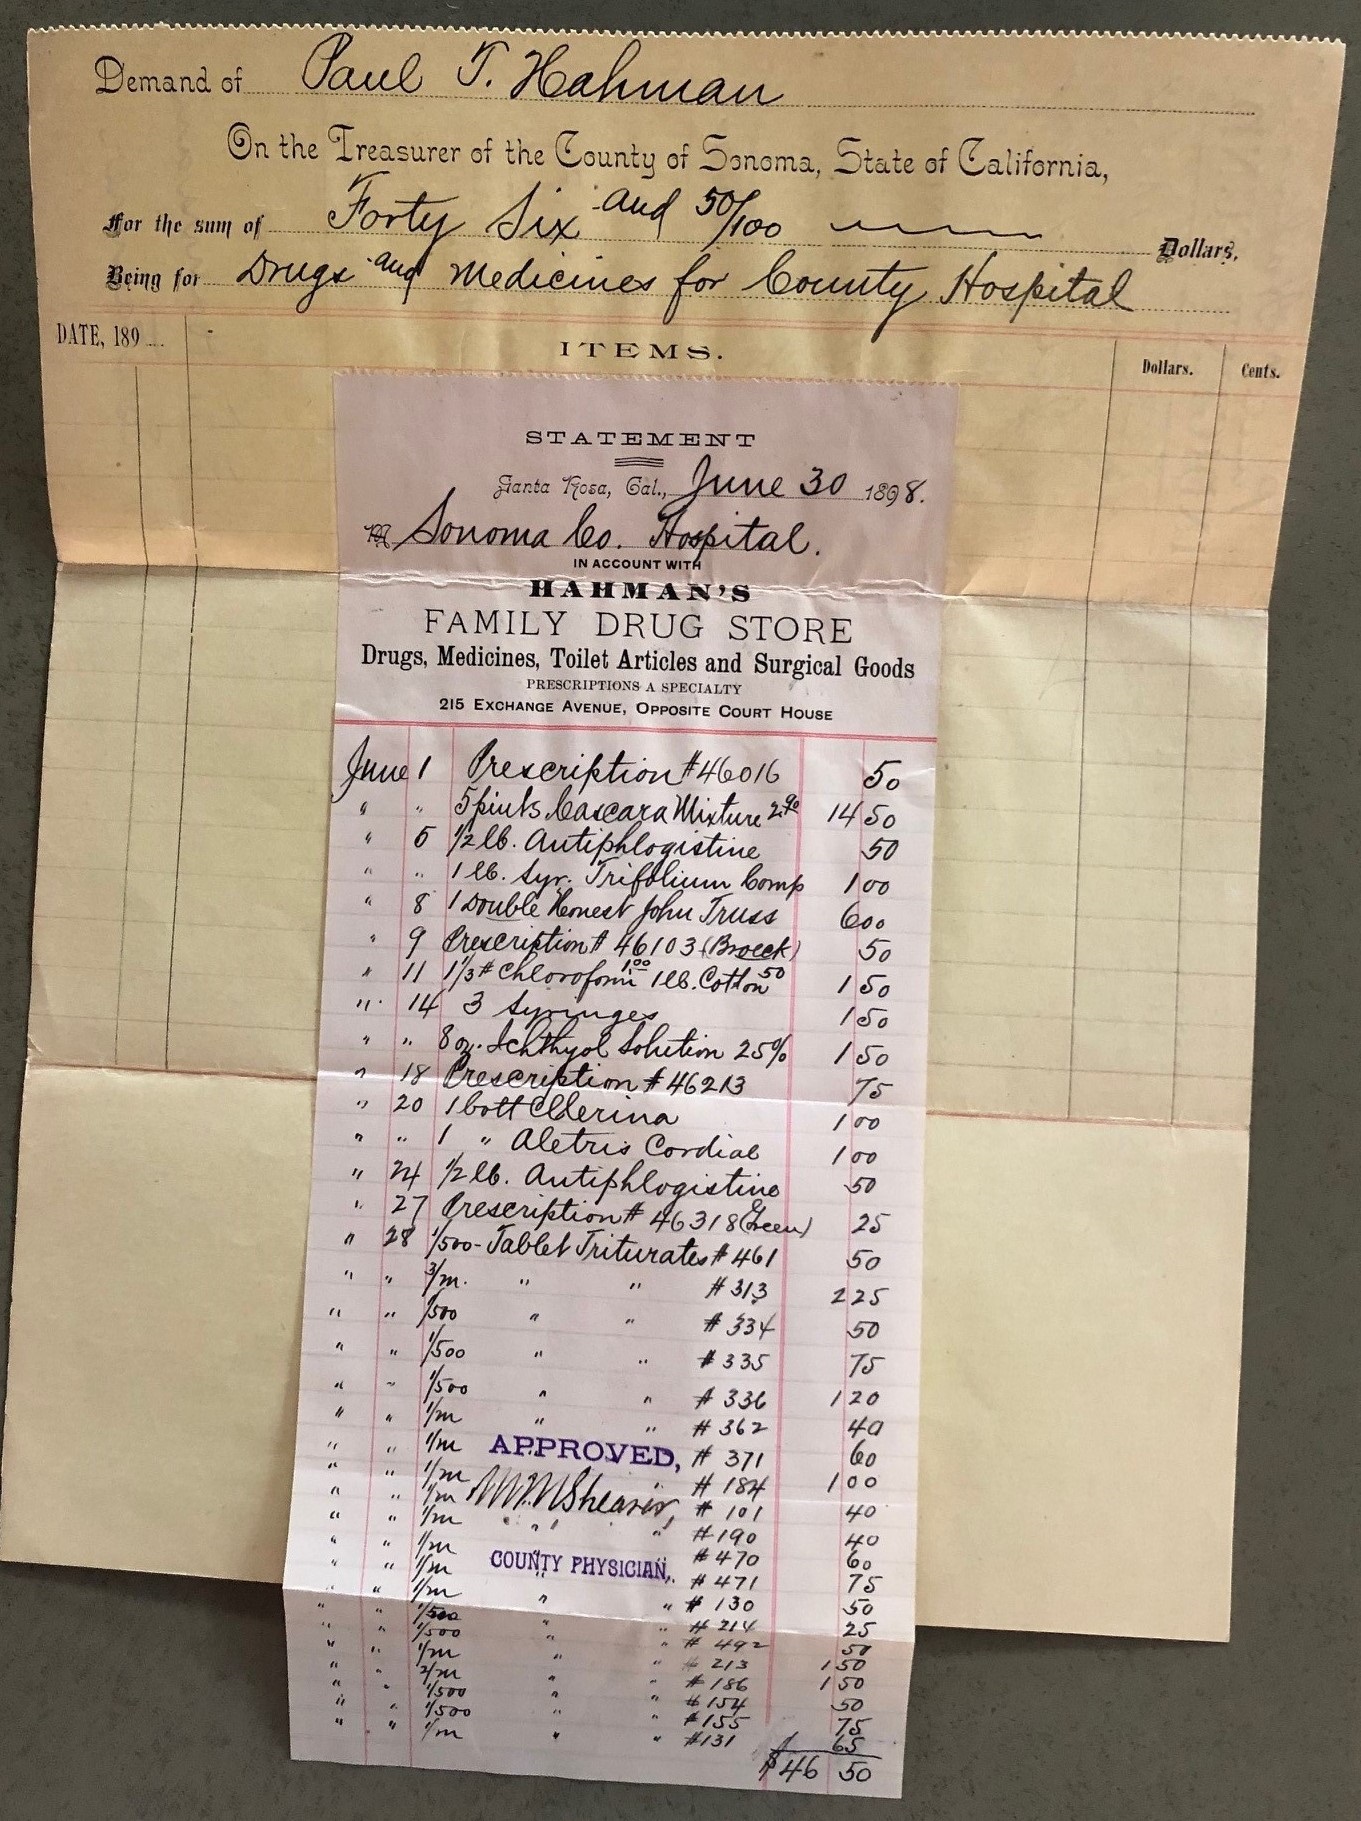 Demand of Paul T. Hahman
On the Treasurer of the County of Sonoma, State of California,
For the sum of Forty Six and 50/100 Dollars,
Being for Drugs and Medicines for County Hospital
DATE, 189 ITEMS. Dollars. Cents.
STATEMENT
Santa Rosa, Cal., June 30 1898.
M Sonoma Co. Hospital.
IN ACCOUNT WITH
HAHMAN'S
FAMILY DRUG STORE
Drugs, Medicines, Toilet Articles and Surgical Goods
PRESCRIPTIONS A SPECIALTY
215 EXCHANGE AVENUE, OPPOSITE COURT HOUSE
June 1 Prescription #46016 50
" " 5 pints Cascara Mixture 2.90 14 50
" 5 1/2 lb. Antiphlogistine 50
" " 1 lb. Syr. Trifolium Comp 1 00
" 8 1 Double Honest John Truss 6 00
" 9 Prescription # 46103 (Broeck) 50
" 11 1/3 # Chloroform 1.00 1 lb. Cotton 50 1 50
" 14 3 Syringes 1 50
" " 8 oz. Ichthyol Solution 25% 1 50
" 18 Prescription # 46213 75
" 20 1 bott Cllerina 1 00
" " 1 " Aletris Cordial 1 00
" 24 1/2 lb. Antiphlogistine 50
" 27 Prescription # 46318 (Green) 25
" 28 1/500 - Tablet Triturates # 461 50
" " 3/m. " " # 313 2 25
" " 1/500 " " # 334 50
" " 1/500 " " # 335 75
" " 1/500 " " # 336 1 20
" " 1/m " " # 362 40
" " 1/m " # 371 60
APPROVED,
" " 1/m " # 184 1 00
WmMShearer,
" " 1/m # 101 40
" " 1/m " " # 190 40
" " 1/m # 470 60
COUNTY PHYSICIAN,
" " 1/m " " # 471 75
" " 1/m " " # 130 50
" " 1/500 " " # 214 25
" " 1/500 " " # 492 50
" " 1/m " " # 213 1 50
" " 2/m " " # 186 1 50
" " 1/500 " " # 154 50
" " 1/500 " " # 155 75
" " 1/m " " #131 65
$46 50